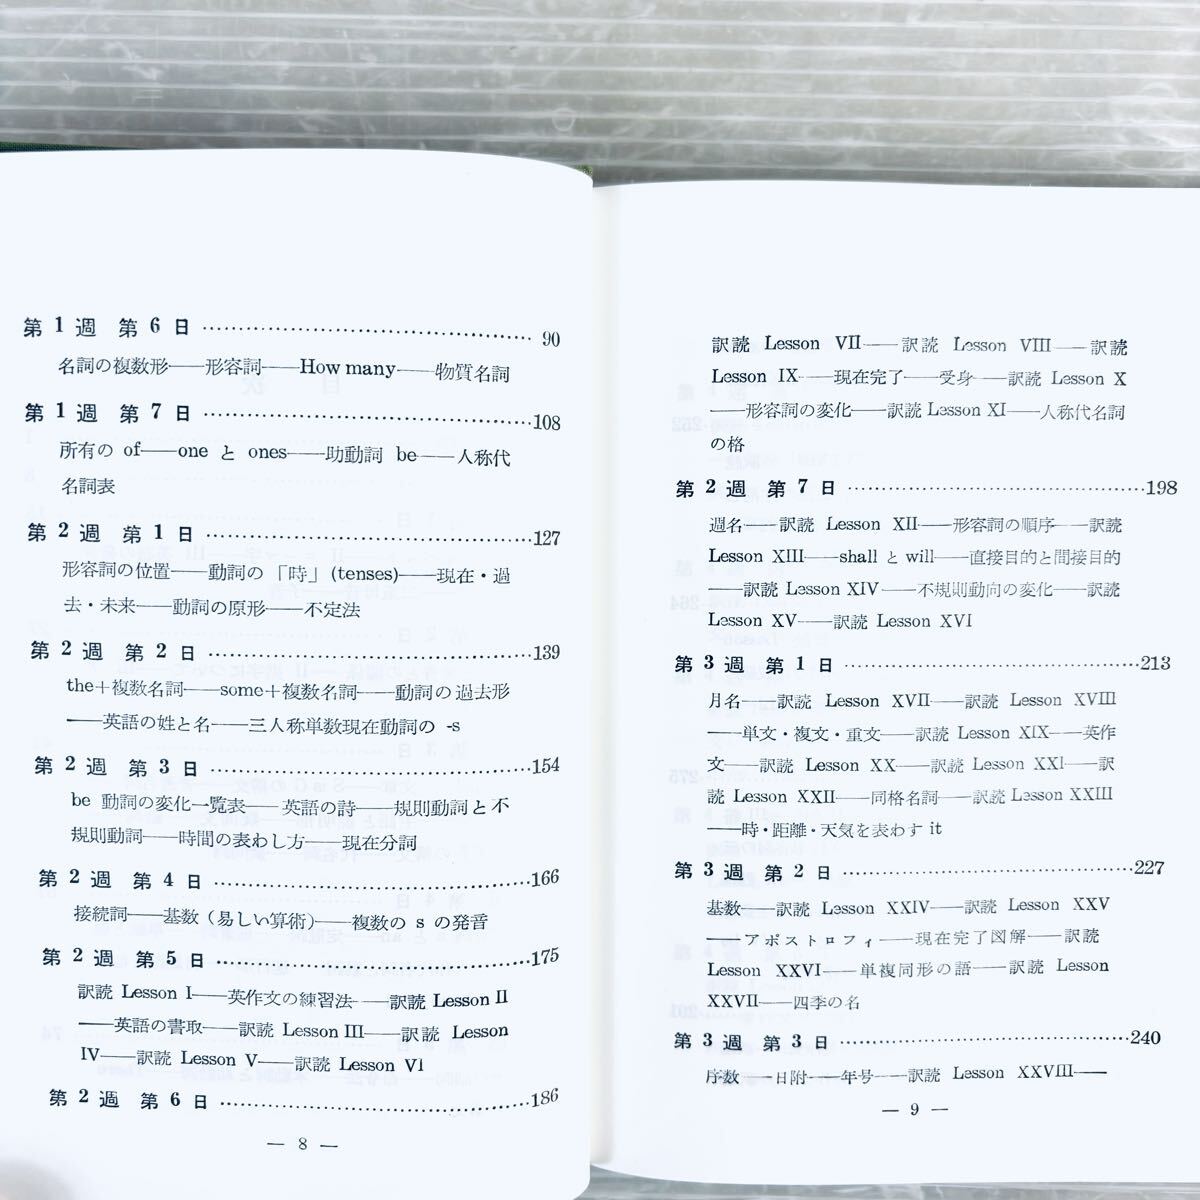 第1週 第6日 …… 90
名詞の複数形——形容詞——How many——物質名詞
第1週 第7日 …… 108
所有の of——one と ones——助動詞 be——人称代
名詞表
第2週 第1日 …… 127
形容詞の位置——動詞の「時」(tenses)——現在・過
去・未来——動詞の原形——不定法
第2週 第2日 …… 139
the+複数名詞——some+複数名詞——動詞の過去形
——英語の姓と名——三人称単数現在動詞の -s
第2週 第3日 …… 154
be 動詞の変化一覧表——英語の詩——規則動詞と不
規則動詞——時間の表わし方——現在分詞
第2週 第4日 …… 166
接続詞——基数(易しい算術)——複数の s の発音
第2週 第5日 …… 175
訳読 Lesson I——英作文の練習法——訳読 Lesson II
——英語の書取——訳読 Lesson III——訳読 Lesson
IV——訳読 Lesson V——訳読 Lesson VI
第2週 第6日 …… 186
— 8 —
訳読 Lesson VII——訳読 Lesson VIII——訳読
Lesson IX——現在完了——受身——訳読 Lesson X
——形容詞の変化——訳読 Lesson XI——人称代名詞
の格
第2週 第7日 …… 198
週名——訳読 Lesson XII——形容詞の順序——訳読
Lesson XIII——shall と will——直接目的と間接目的
——訳読 Lesson XIV——不規則動向の変化——訳読
Lesson XV——訳読 Lesson XVI
第3週 第1日 …… 213
月名——訳読 Lesson XVII——訳読 Lesson XVIII
——単文・複文・重文——訳読 Lesson XIX——英作
文——訳読 Lesson XX——訳読 Lesson XXI——訳
読 Lesson XXII——同格名詞——訳読 Lesson XXIII
——時・距離・天気を表わす it
第3週 第2日 …… 227
基数——訳読 Lesson XXIV——訳読 Lesson XXV
——アポストロフィ——現在完了図解——訳読
Lesson XXVI——単複同形の語——訳読 Lesson
XXVII——四季の名
第3週 第3日 …… 240
序数——日附——年号——訳読 Lesson XXVIII——
— 9 —